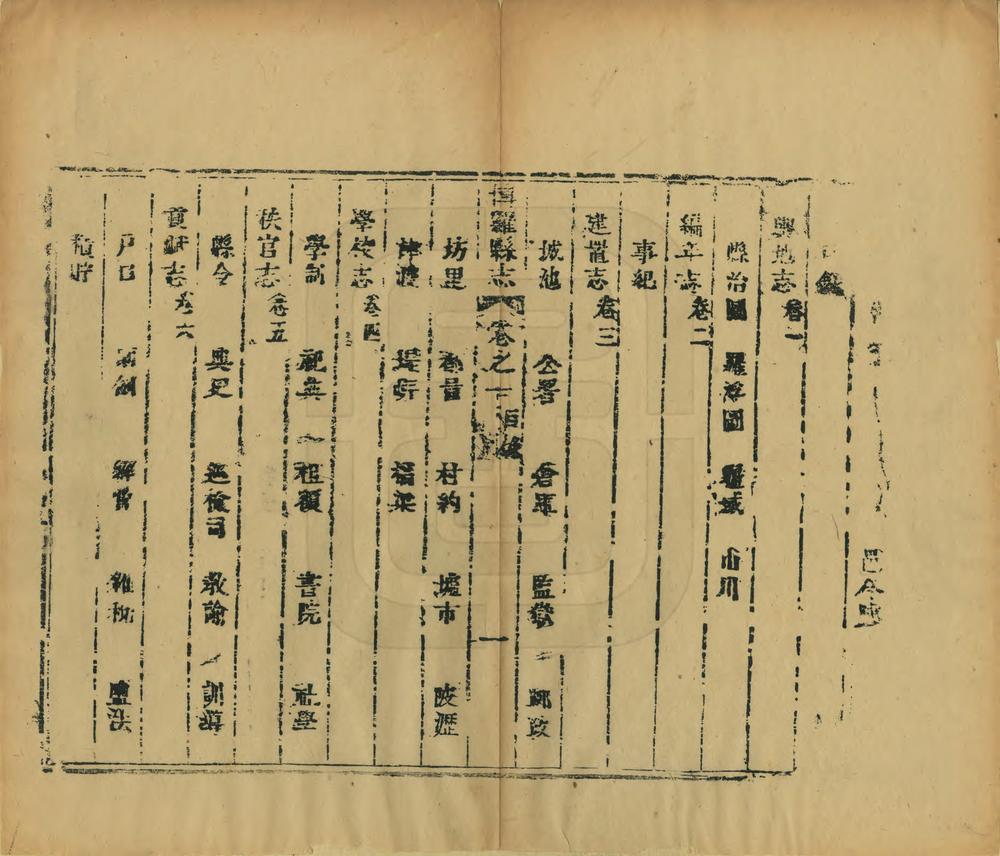 目錄
輿地志 卷一
縣治圖 羅浮圖 疆域 山川
編年志 卷二
事紀
建置志 卷三
城池 公署 倉庫 監獄 郵政
博羅縣志 卷之一 目錄 一
坊里 都畐 村約 墟市 陂瀝
津渡 堤岸 橋梁
學校志 卷四
學制 祀典 租額 書院 社學
秩官志 卷五
縣令 典史 巡檢司 教諭 訓導
貢賦志 卷六
戶口 雜稅 鹽法
積貯